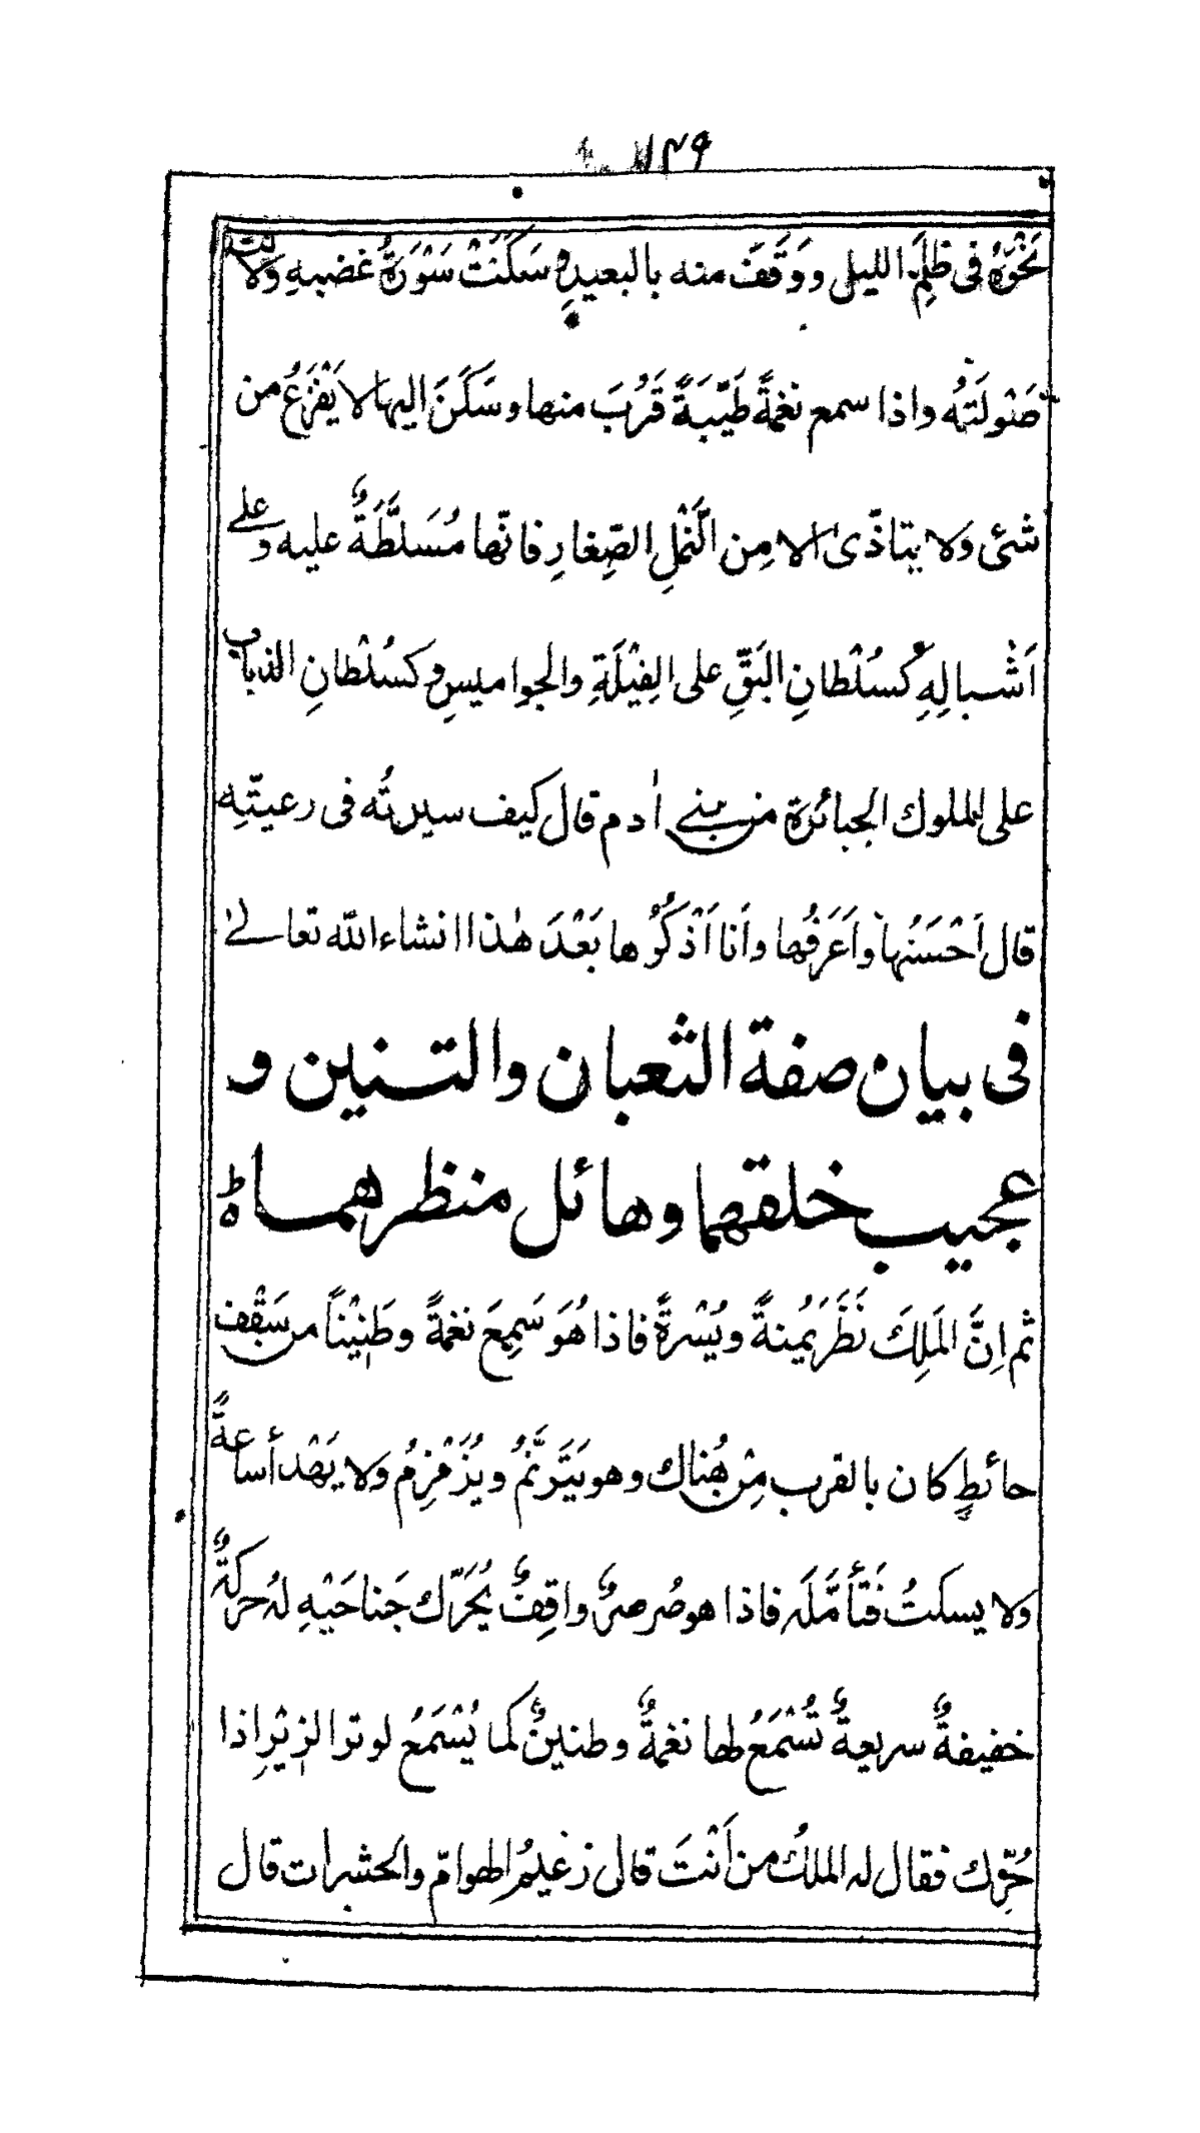 ١٤٩
نَحْوَهُ فى ظُلَمِ الليل ووَقَفَ منه بالبعيدِ سَكَنَتْ سَوْرَةُ غضبِهِ ولانت
صَوْلَتُهُ واذا سمع نغمةً طَيِّبَةً قَرُبَ منها وسَكَنَ اليها لا يَفْزَعُ من
شئ وَلا يتاذّى الا مِن النَّمْلِ الصِّغارِ فانّها مُسَلَّطَةٌ عليه وعلے
اَشْبالِهِ كسُلْطانِ البَقِّ على الفِيْلَةِ والجواميسِ وكسُلْطانِ الذباب
على الملوك الجبائرة من بنے اٰدم قال كيف سيرتُه فى رعيتّهِ
قال اَحْسَنُها واَعْرَفُها واَنا اَذْكُرُها بَعْدَ هٰذا انشاء الله تعالےٰ
فى بيان صفة الثعبان والتنين و
عجيب خلقهما وهائل منظرهما ۃ
ثم اِنَّ المَلِكَ نَظَرَ يُمْنةً ويُسْرةً فاذا هُوَ سَمِعَ نغمةً وطَنِيْناً من سَقْف
حائطٍ كان بالقرب مِنْ هُناك وهو يَتَرَنَّمُ ويُزَمْزِمُ ولا يَهْدأ ساعةً
ولا يسكتُ فَتَأَمَّلَه فاذا هو صُرصرٌ واقِفٌ يُحَرِّك جَناحَيْهِ له حركةٌ
خفيفةٌ سريعةٌ تُسْمَعُ لها نغمةٌ وطنينٌ كما يُسْمَعُ لوتر الزِيْرِ اذا
حُرِّك فقال له الملكُ من اَنْتَ قال زعيمُ الهوامّ والحشرات قال